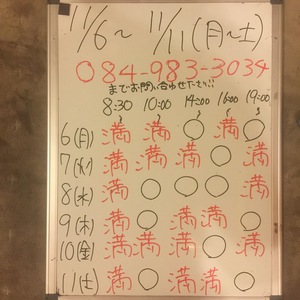 11/6～11/11(月～土)
084-983-3034
までお問い合わせください!!
8:30 10:00 14:00 16:00 19:00
～ ～ ～ ～ ～
6(月) 満 満 ○ 満 ○
7(火) 満 満 満 ○ 満
8(水) 満 ○ ○ ○ 満
9(木) 満 満 ○ 満 ○
10(金) 満 満 満 ○ 満
11(土) 満 ○ 満 満 ○